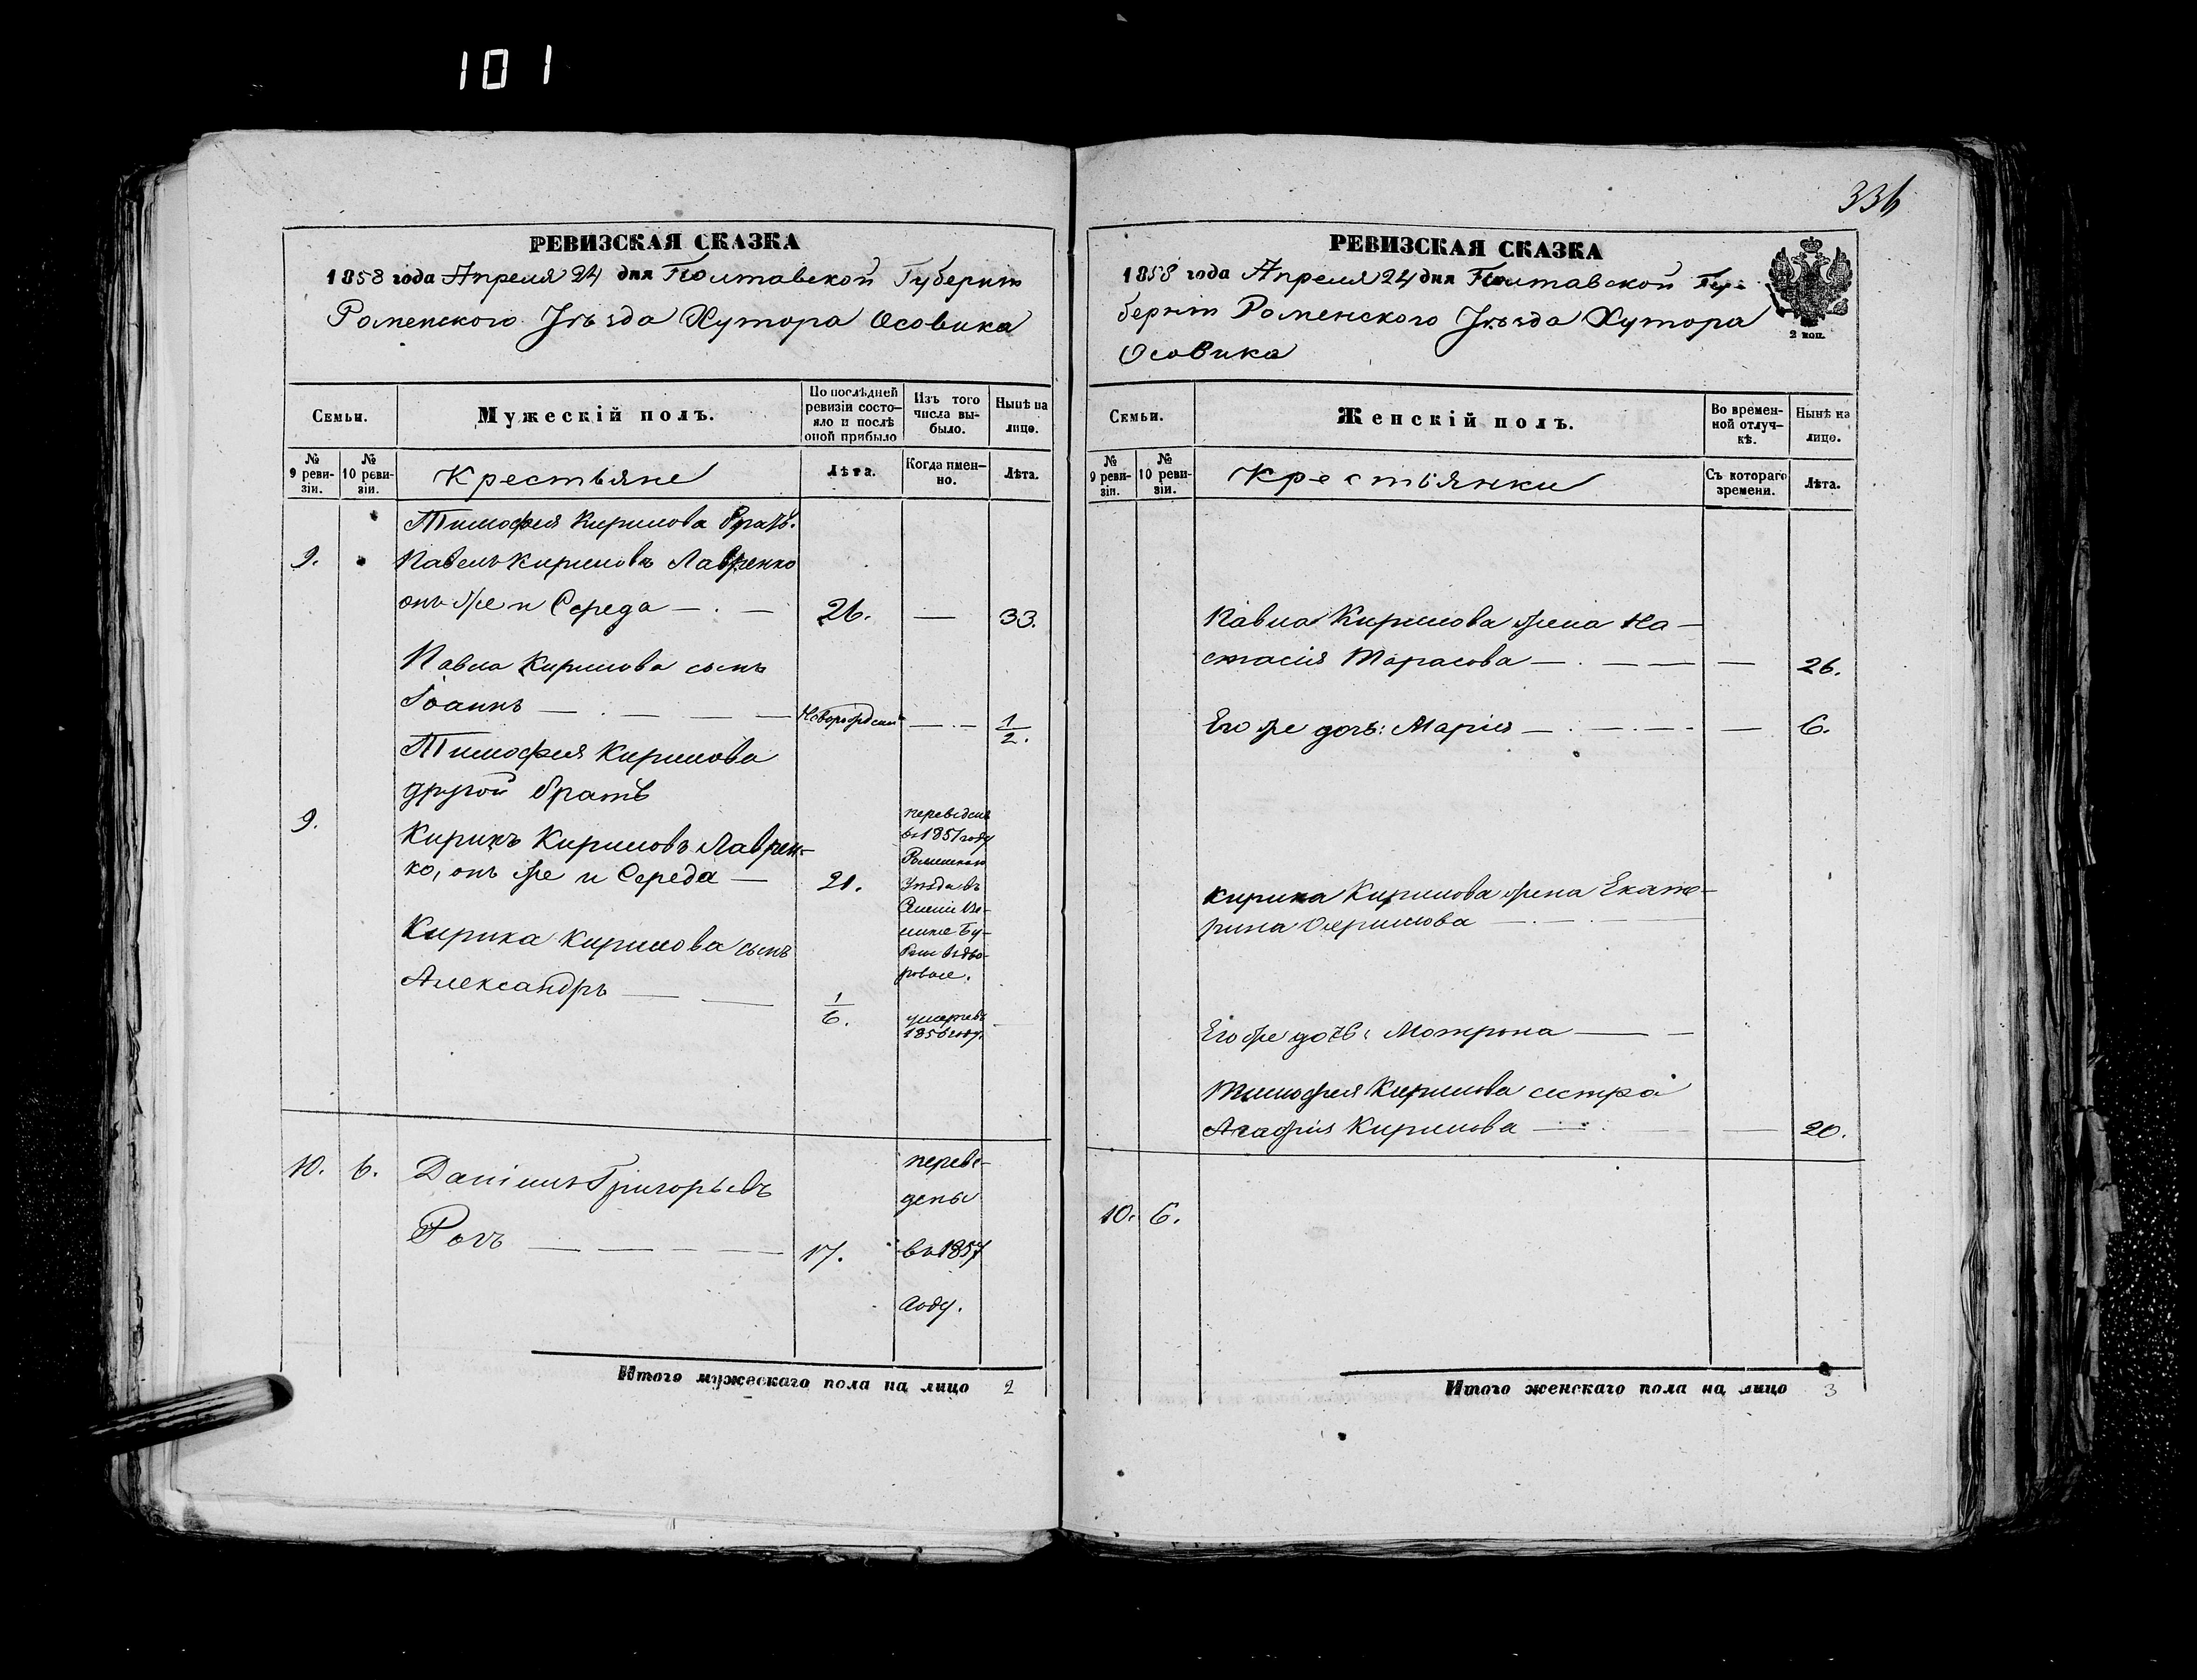 101
336
РЕВИЗСКАЯ СКАЗКА
1858 года Апреля 24 дня Полтавской Губерніи
Роменского Уѣзда Хутора Осовика
Семьи.
Мужескій полъ.
По послѣдней ревизіи состояло и послѣ оной прибыло
Изъ того числа выбыло.
Нынѣ на лицо.
№ 9 ревизіи.
№ 10 ревизіи.
Крестьяне
Лѣта.
Когда именно.
Лѣта.
Тимофея Кирилова братъ.
9. Павелъ Кириловъ Лавренко
онъ же и Середа — . — 26. — 33.
Павла Кирилова сынъ
Іоаннъ — . — — — Новорожденъ — . — 1/2.
Тимофея Кирилова
другой братъ
9. Кирикъ Кириловъ Лаврен-
ко, онъ же и Середа — 21.
переведенъ
въ 1857 году
Роменского
Уѣзда въ
Кирика Кирилова сынъ
Александръ — — 1/6.
умертвъ
1856 году.
10. 6. Даніилъ Григорьевъ
Рогъ — — — — 17.
переве-
дены
въ 1857
году.
Итого мужескаго пола на лицо 2
РЕВИЗСКАЯ СКАЗКА
1858 года Апреля 24 дня Полтавской Гу-
берніи Роменского Уѣзда Хутора
Осовика
2 коп.
Семьи.
Женскій полъ.
Во временной отлучкѣ.
Нынѣ на лицо.
№ 9 ревизіи.
№ 10 ревизіи.
Крестьянки
Съ котораго времени.
Лѣта.
Павла Кирилова жена На-
стасія Тарасова — . — — — 26.
Его же дочь: Марія — . — . — . — 6.
Кирика Кирилова жена Екате-
рина
Его же дочь: Мотрона — —
Тимофея Кирилова сестра
Агафія Кирилова — — 20.
10. 6.
Итого женскаго пола на лицо 3